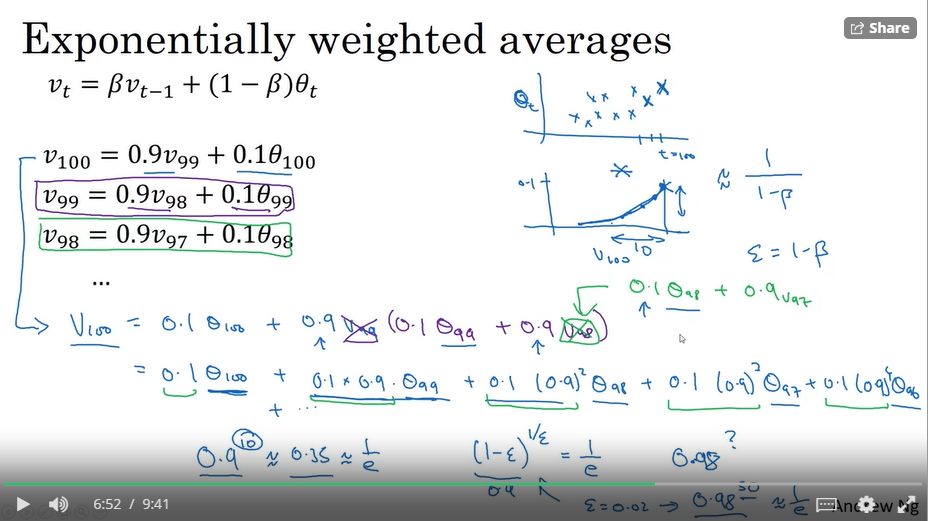 Share
Exponentially weighted averages
v_t = βv_{t−1} + (1 − β)θ_t
θ_t
t=100
v_100 = 0.9v_99 + 0.1θ_100
0.1
≈ 1/(1-β)
v_99 = 0.9v_98 + 0.1θ_99
v_98 = 0.9v_97 + 0.1θ_98
V_100
10
ε = 1-β
...
0.1 θ_98 + 0.9 v_97
V_100 = 0.1 θ_100 + 0.9 v_99 (0.1 θ_99 + 0.9 v_98)
= 0.1 θ_100 + 0.1 × 0.9 · θ_99 + 0.1 (0.9)^2 θ_98 + 0.1 (0.9)^3 θ_97 + 0.1 (0.9)^4 θ_96
+ ...
0.9^10 ≈ 0.35 ≈ 1/e
(1-ε)^{1/ε} = 1/e
0.98 ?
0.9
ε = 0.02 → 0.98^50 ≈ 1/e
6:52 / 9:41
Andrew Ng